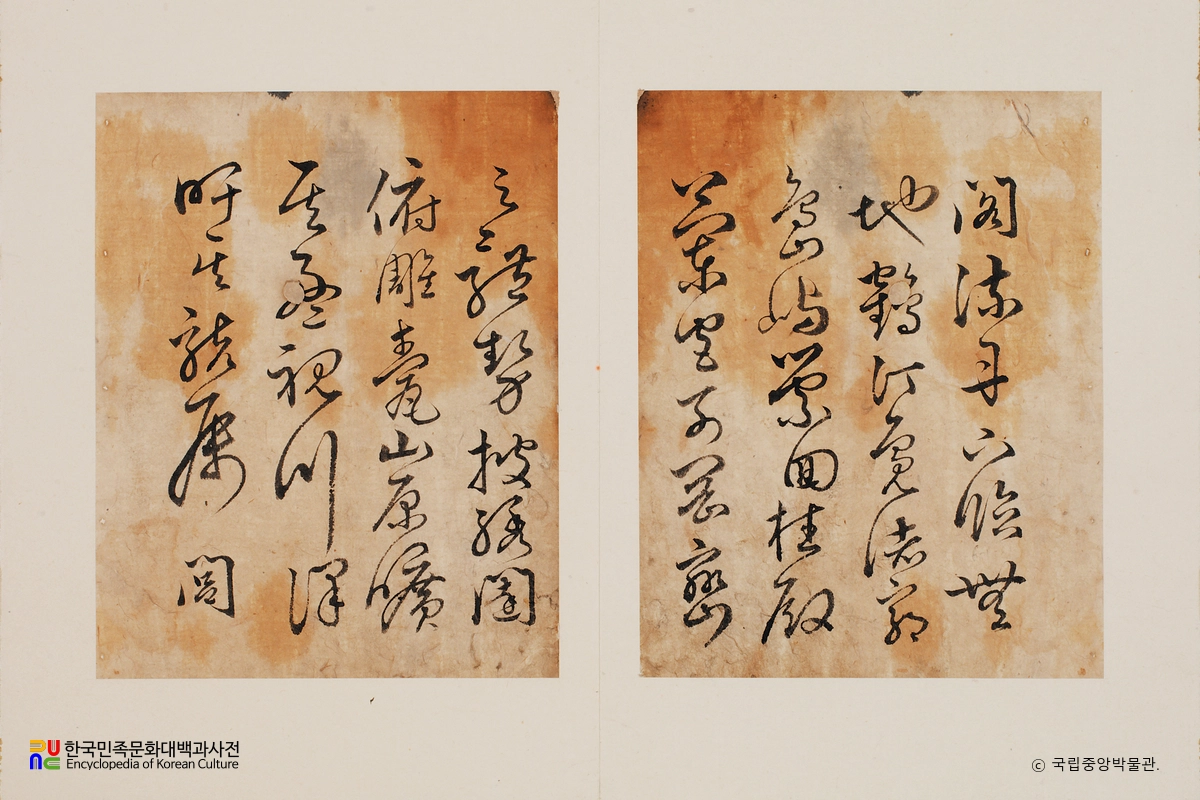 閣流丹下臨無
地鶴汀鳧渚窮
島嶼縈回桂殿
蘭宮列岡巒
之體勢披繡闥
俯雕甍山原曠
其盈視川澤
盱其駭矚閭
한국민족문화대백과사전
Encyclopedia of Korean Culture
ⓒ 국립중앙박물관.